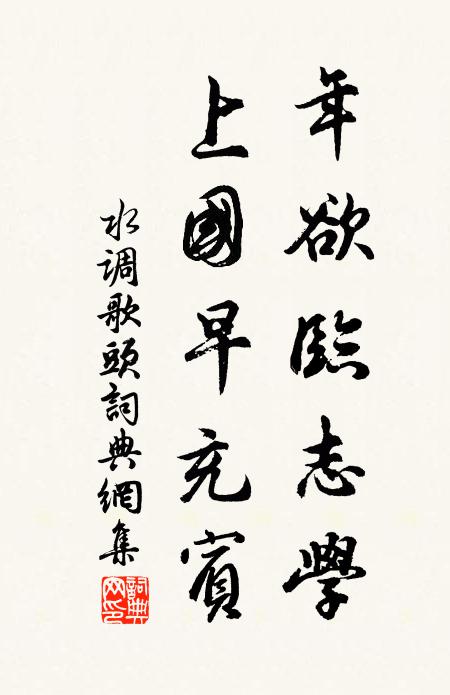 年欲臨志學
上國早充賓
水調歌頭詞典網集
詞典網印